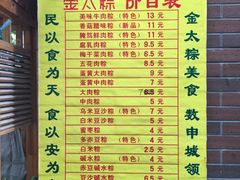 金太粽 价目表
民以食为天 食以安为
金太粽美食 数申城领
美味牛肉粽（特色）13 元
香菇腊味粽（新品）11 元
腌笃鲜肉粽（特色）11 元
腐乳肉粽（特色）9.5 元
梅干菜肉粽（特色）8.5 元
五花肉粽 8.5 元
蛋黄大肉粽 9 元
蛋黄中肉粽 7 元
大肉粽 元
中肉粽 5 元
乌米豆沙粽（特色）7 元
白米豆沙粽 5 元
蜜枣粽 4 元
多赤豆粽（特色）4 元
白米粽 2.5 元
碱水粽（特色）4 元
赤豆碱水粽（特色）5 元
豆沙碱水粽（特色）6.5 元